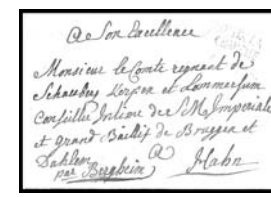 a Son Excellence
Monsieur le Comte regnant de
Schaesberg Kerpen et Lommersum
Conseiller Intime de S. M. Imperiale
et grand Baillif de Bruggen et
Dahlem a
par Bergheim Hahn